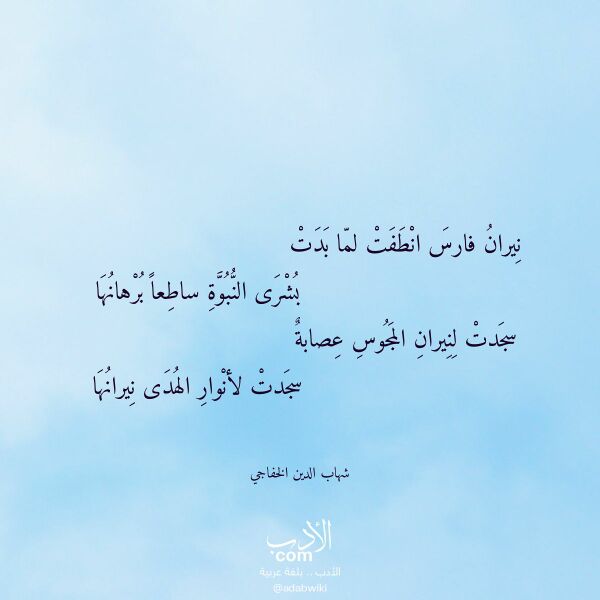 نِيرانُ فارسَ انْطَفَتْ لمّا بَدَتْ
بُشْرَى النُّبُوَّةِ ساطِعاً بُرْهانُهَا
سجَدتْ لِنِيرانِ المَجُوسِ عِصابةٌ
سجَدتْ لأنْوارِ الهُدَى نِيرانُهَا
شهاب الدين الخفاجي
الأدب
.com
الأدب .. بلغة عربية
@adabwiki